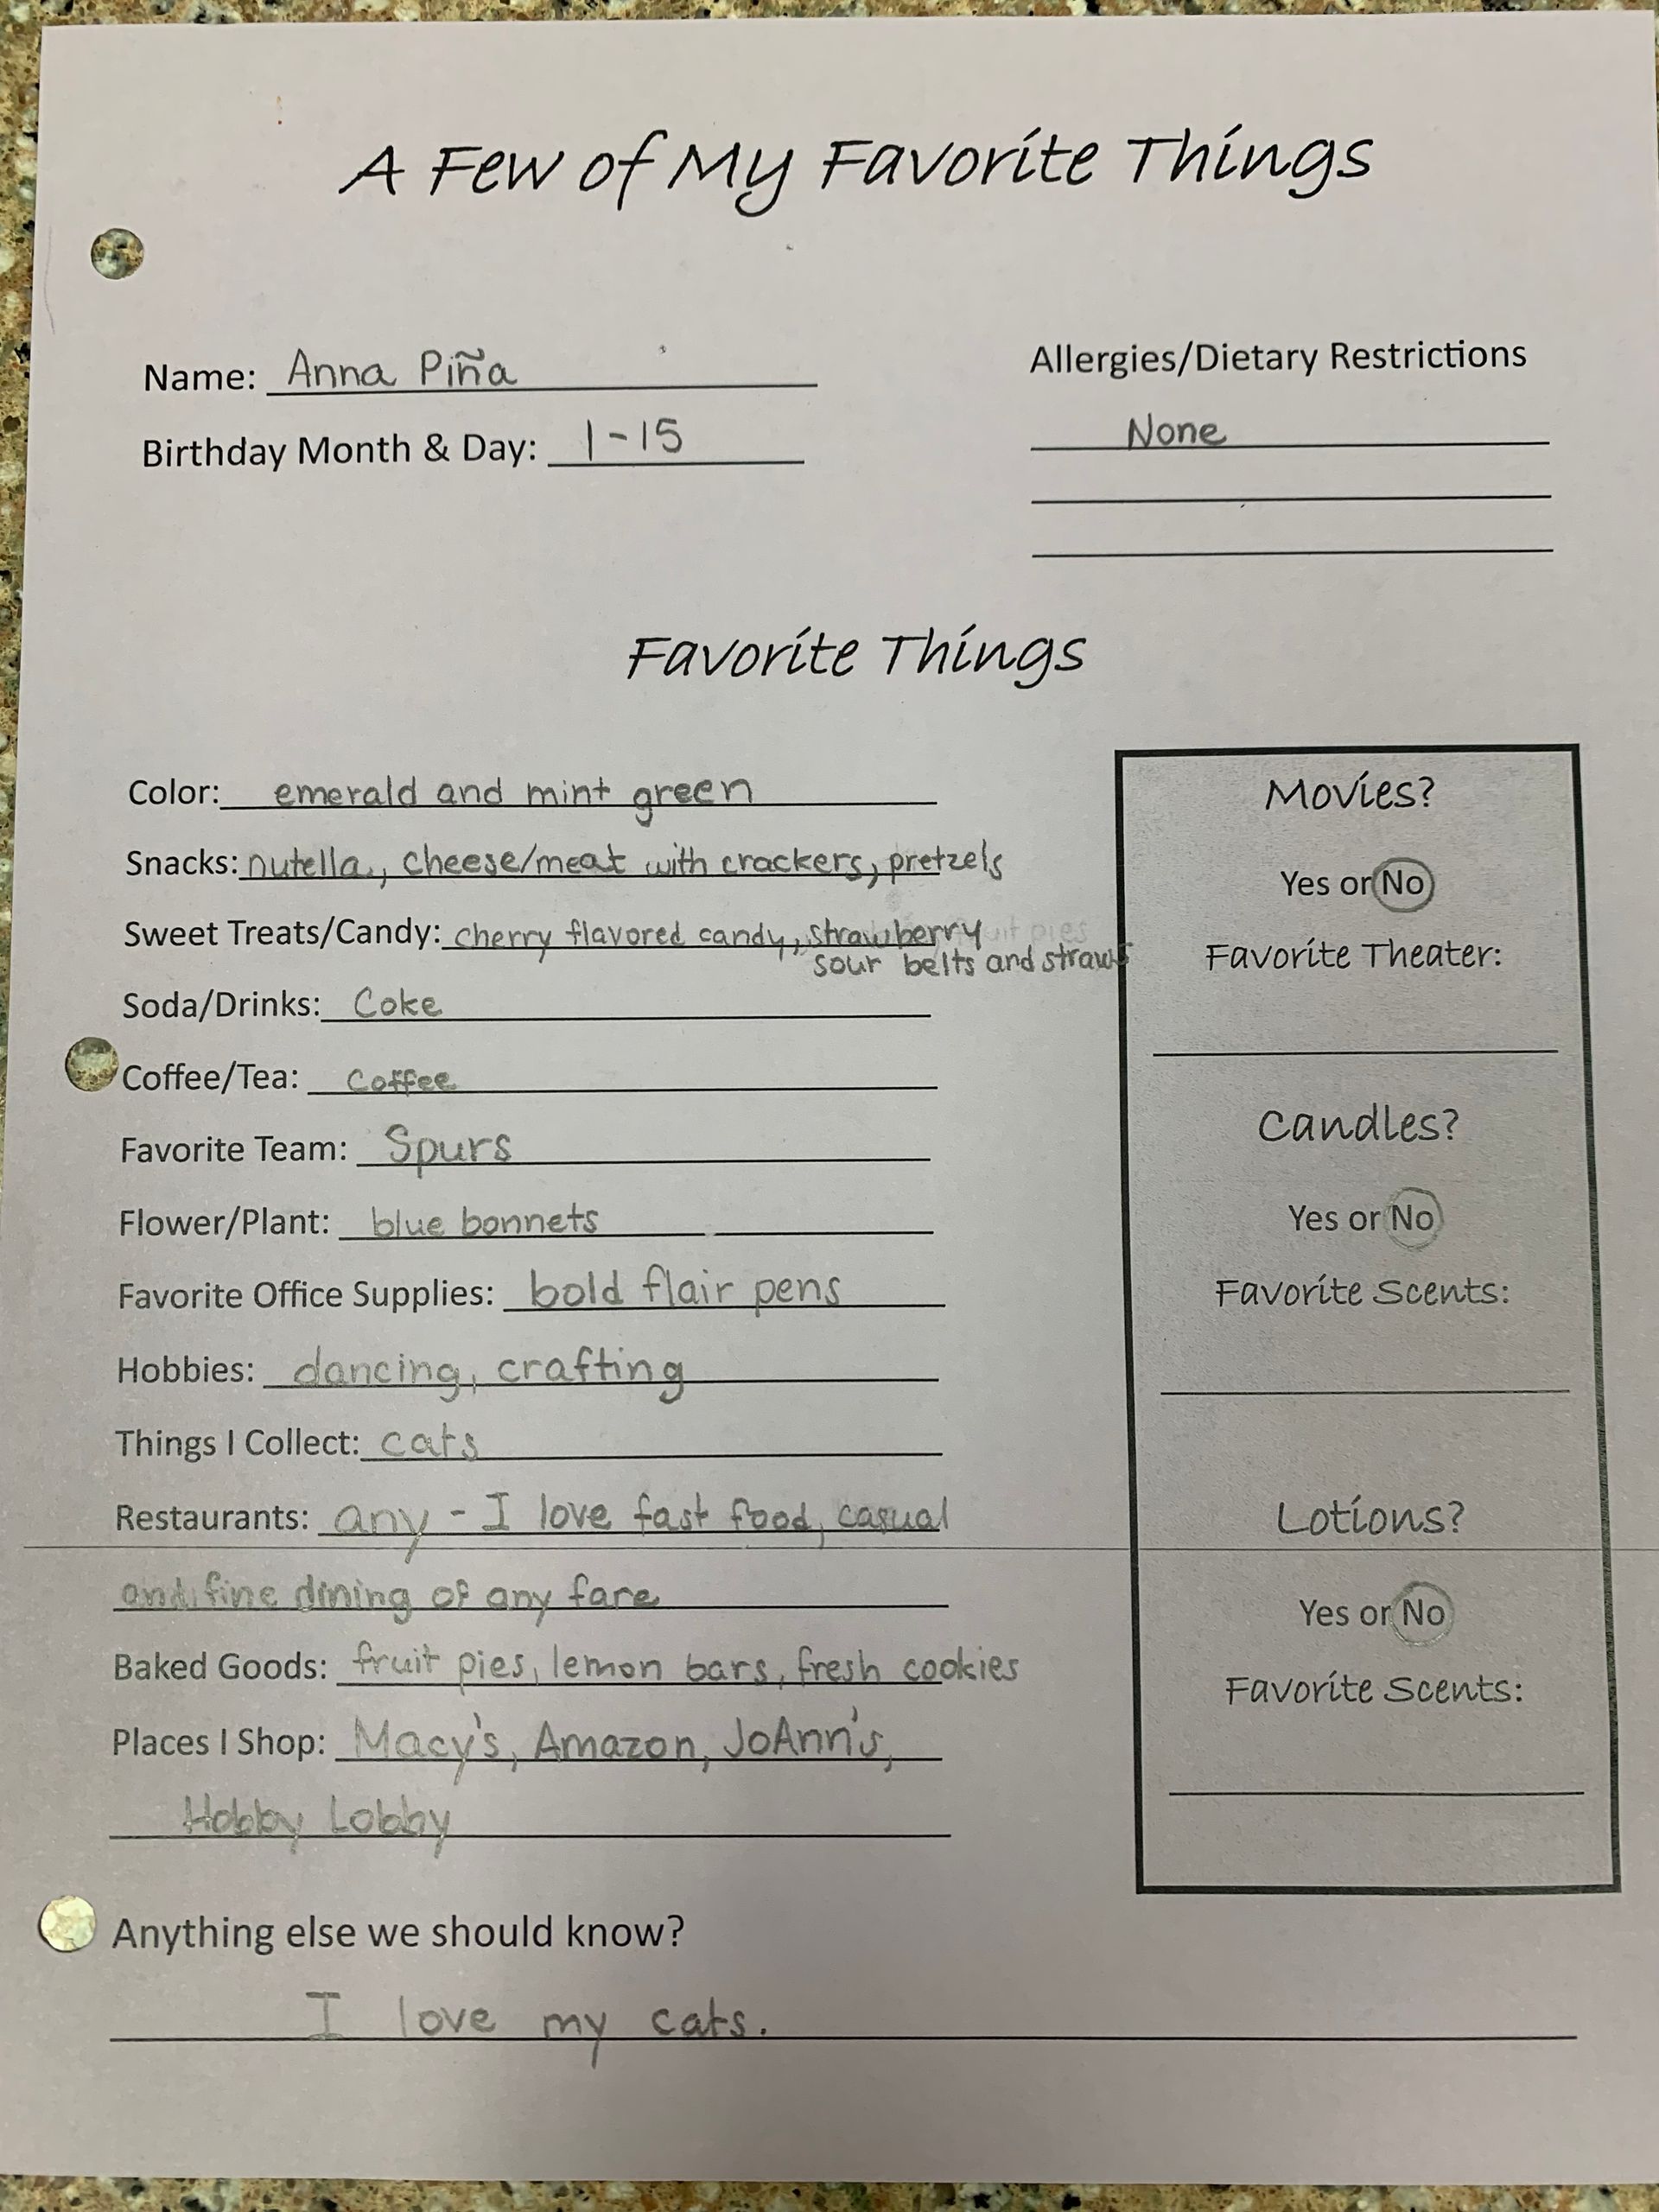 A Few of My Favorite Things
Name: Anna Piña
Birthday Month & Day: 1-15
Allergies/Dietary Restrictions
None
Favorite Things
Color: emerald and mint green
Snacks: nutella, cheese/meat with crackers, pretzels
Sweet Treats/Candy: cherry flavored candy, strawberry
sour belts and straws
Soda/Drinks: Coke
Coffee/Tea: Coffee
Favorite Team: Spurs
Flower/Plant: blue bonnets
Favorite Office Supplies: bold flair pens
Hobbies: dancing, crafting
Things I Collect: cats
Restaurants: any - I love fast food, casual
and fine dining of any fare
Baked Goods: fruit pies, lemon bars, fresh cookies
Places I Shop: Macy's, Amazon, JoAnn's,
Hobby Lobby
Movies?
Yes or No
Favorite Theater:
Candles?
Yes or No
Favorite Scents:
Lotions?
Yes or No
Favorite Scents:
Anything else we should know?
I love my cats.